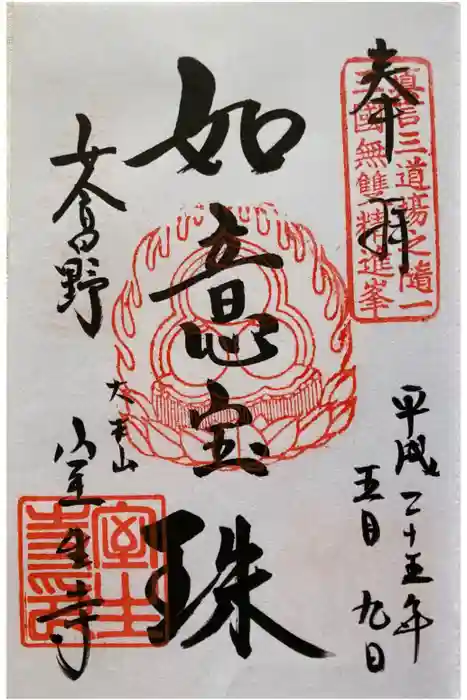 奉拝
真言三道場之随一
三國無雙精進峯
平成二十五年
五月九日
如意宝珠
女人高野
大本山
室生寺
室生寺